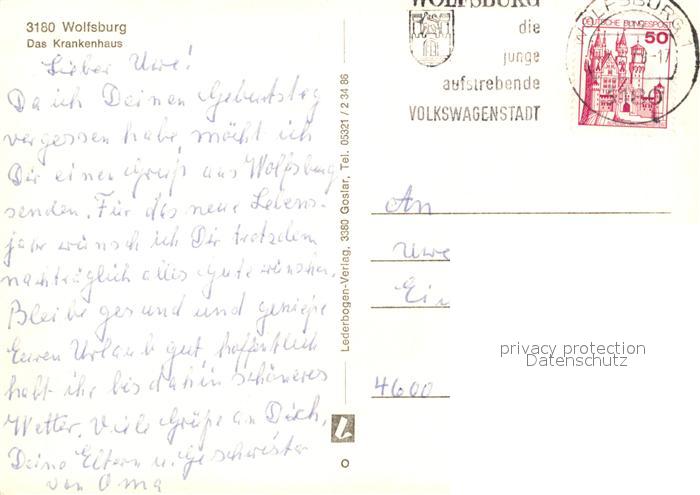 3180 Wolfsburg
Das Krankenhaus
Lieber Uwe!
Da ich Deinen Geburtstag
vergessen habe, möcht ich
Dir einen Gruß aus Wolfsburg
senden. Für das neue Lebens-
jahr wünsch ich Dir trotzdem
nachträglich alles Gute wünschen.
Bleibe gesund und genieße
Euren Urlaub gut, hoffentlich
habt ihr bis dahin schöneres
Wetter. Viele Grüße an Dich,
Deine Eltern u. Geschwister
von Oma
Lederbogen-Verlag, 3380 Goslar, Tel. 05321 / 2 34 86
WOLFSBURG
die
junge
aufstrebende
VOLKSWAGENSTADT
WOLFSBURG 1
-17
DEUTSCHE BUNDESPOST
50
An
Uwe
Ein
4600
privacy protection
Datenschutz